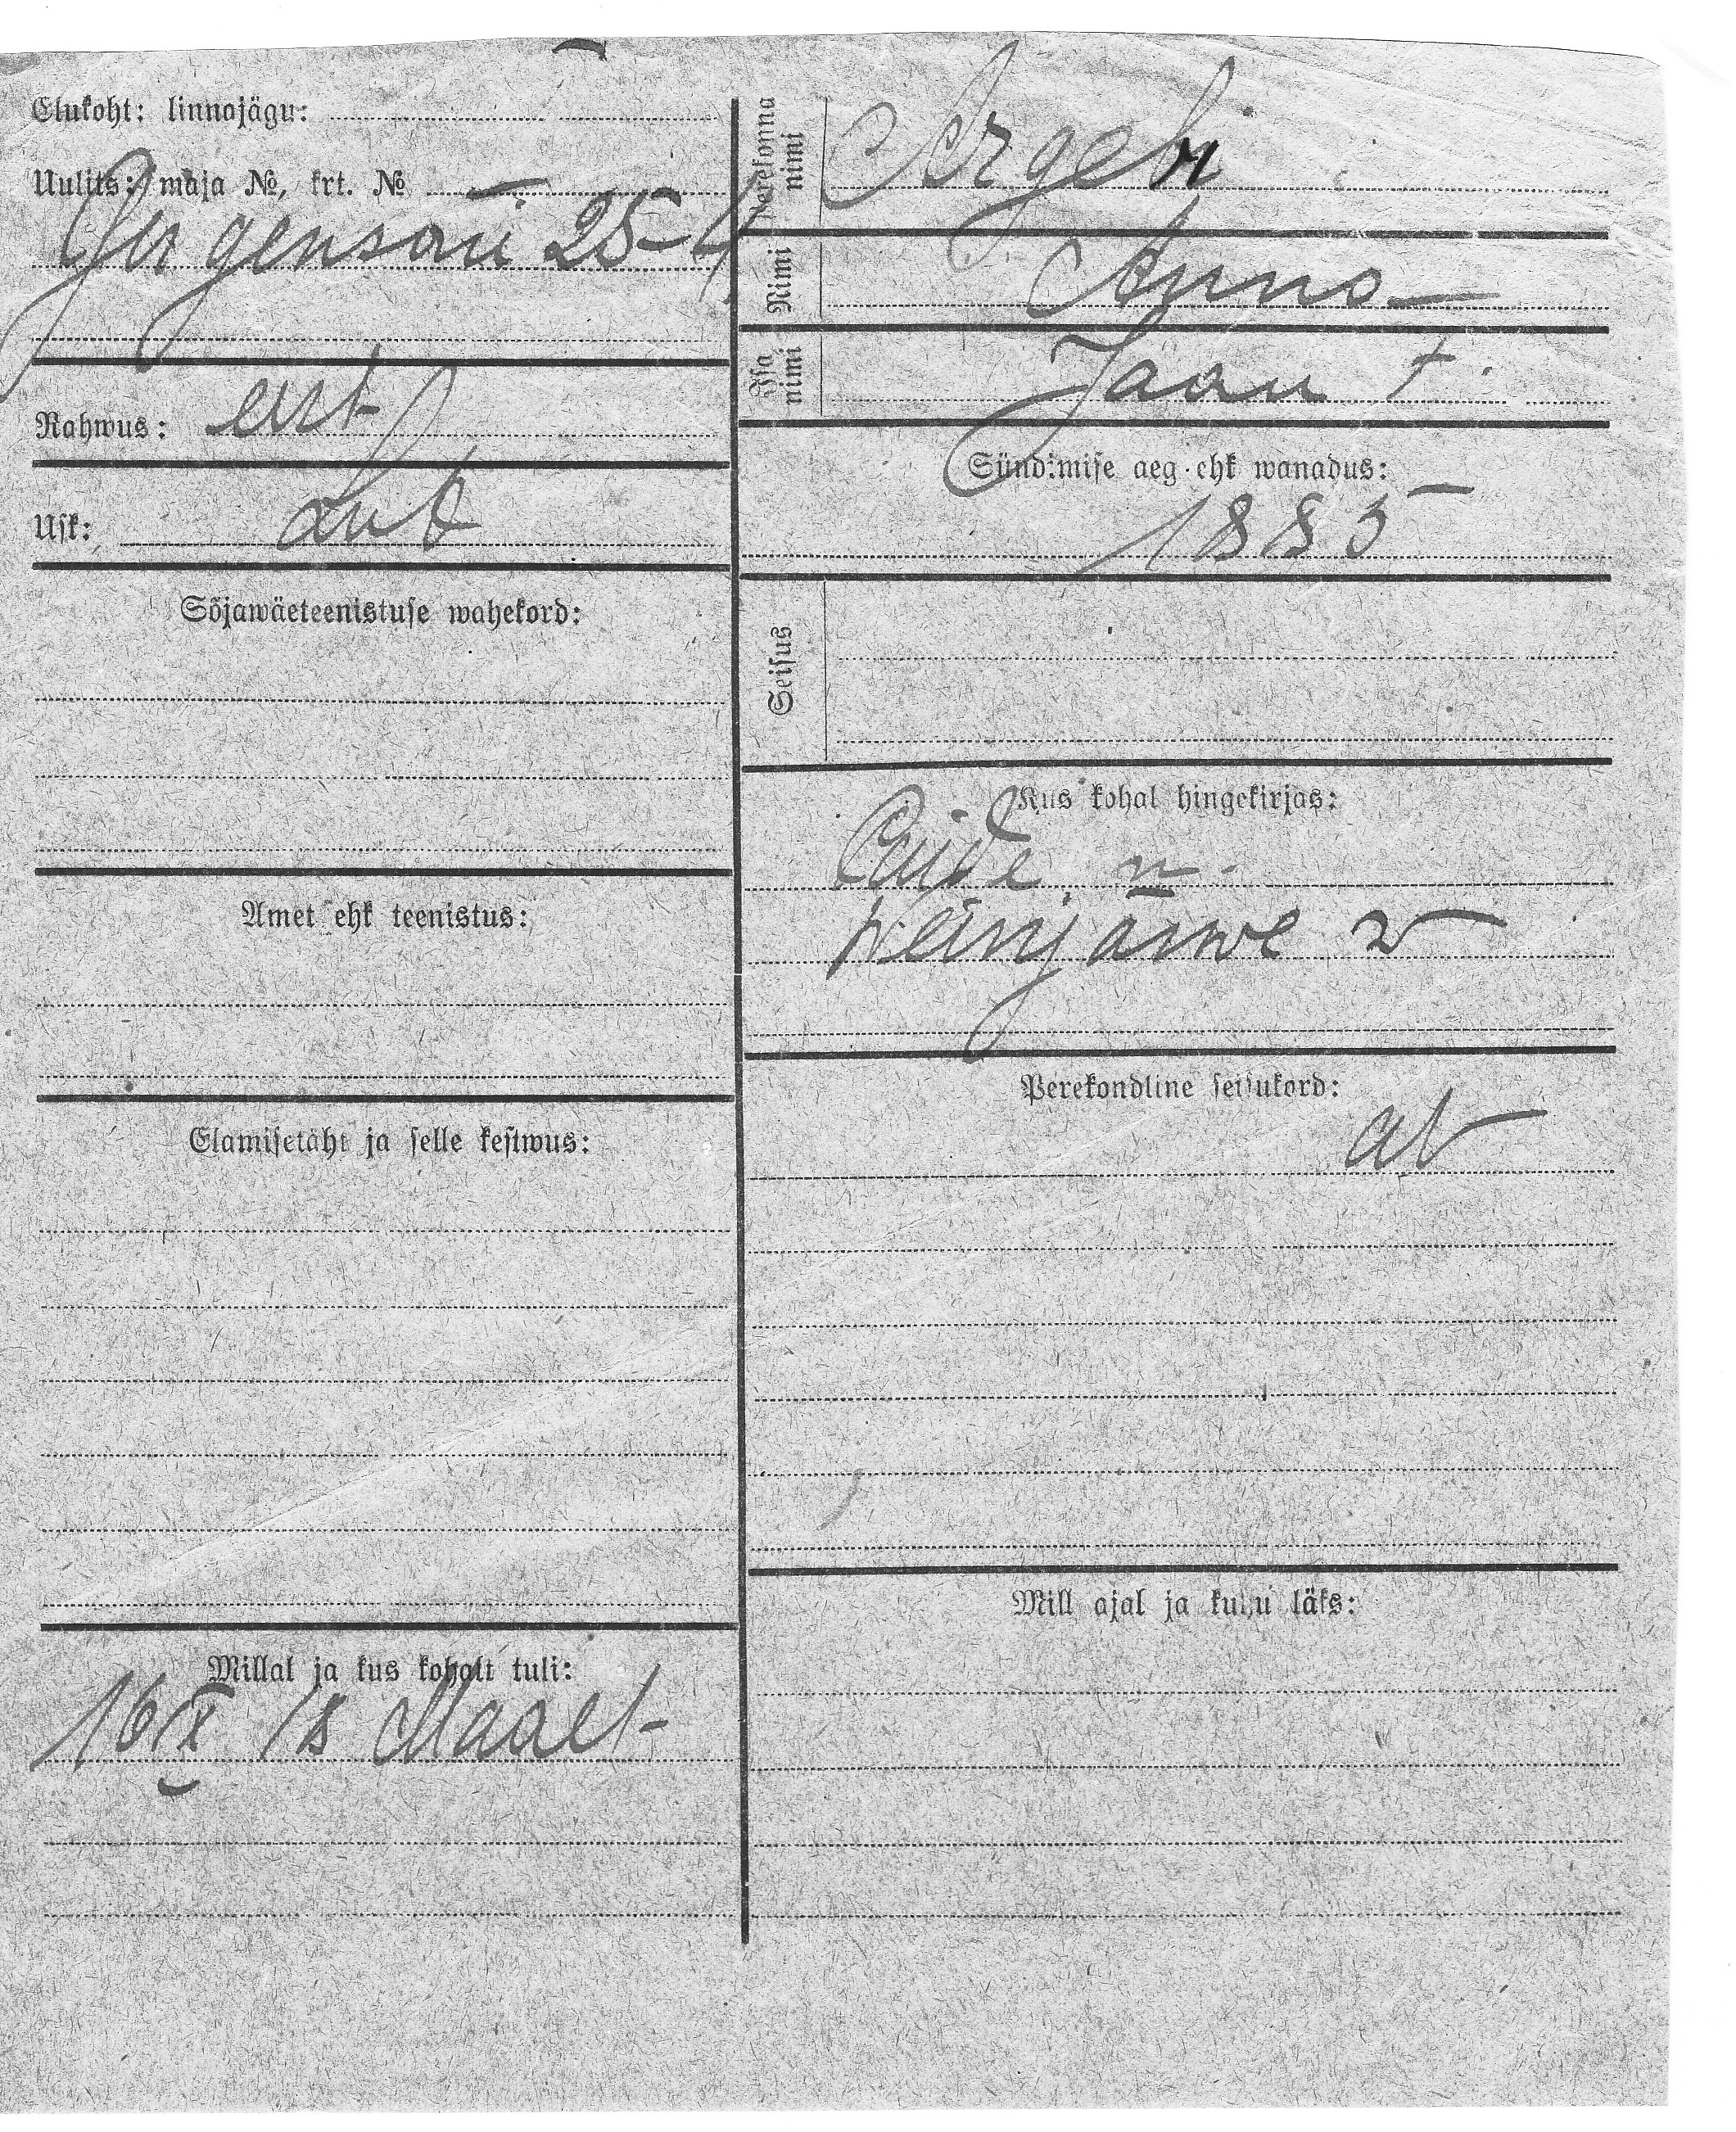 Elukoht: linnajägu:
Uulits: maja №, krt. №
Jurgensoni 25-4
Rahwus: eest
Usk: Lut
Sõjawäeteenistuse wahekord:
Amet ehk teenistus:
Elamisetäht ja selle kestwus:
Millal ja kus kohalt tuli:
16 IX 18 Maalt
Perekonna
nimi
Nimi
Anna
Isa
nimi
Jaan t.
Sündimise aeg ehk wanadus:
1885
Seisus
Kus kohal hingekirjas:
Paide m.
Weinjärwe w
Perekondline seisukord:
ab
Mill ajal ja kuhu läks: